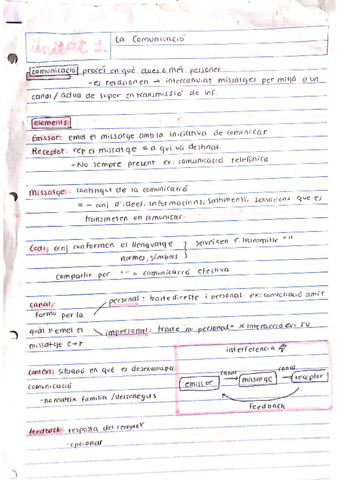 unitat 1.
La Comunicació
comunicació procés en què dues o més persones
- es relacionen → intercanviat missatges per mitjà d'un
canal / actua de super en transmissió de inf.
elements
Emissor: emet el missatge amb la iniciativa de comunicar
Receptor: rep el missatge = a qui va destinat.
- No sempre present ex: comunicació telefònica
Missatge: contingut de la comunicació
= - conj d'idees, informacions, sentiments, sensacions que es
transmeten en comunicar.
Codi: conj conformen el llenguatge
normes, símbols
serveixen p. transmitir " "
compartir per " " = comunicació efectiva
canal:
forma per la
qual s'emet el
missatge E→r
personal: directe i personal ex: amic
impersonal: no personal x interacció ex: TV
context: situació en què es desenvolupa
comunicació
- família / desconeguts
interferencia
emissor
canal
missatge
canal
receptor
feedback
feedback: resposta del receptor
- opcional